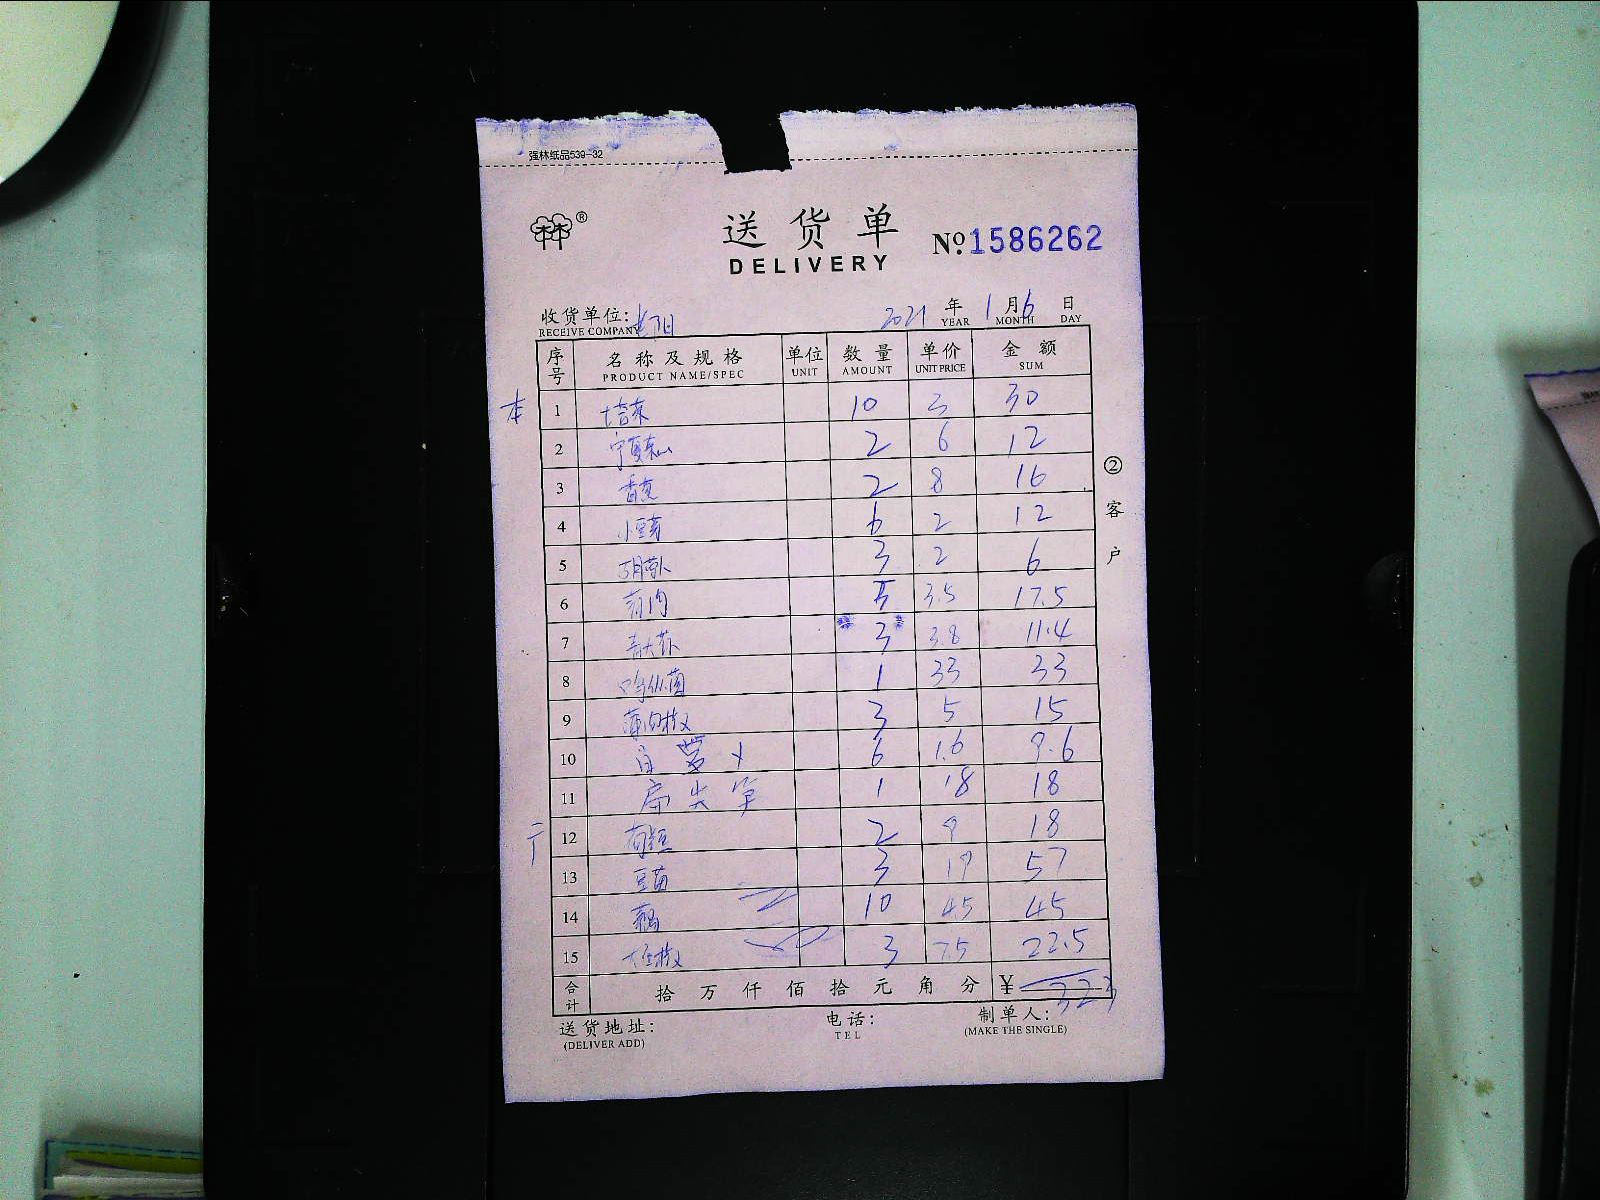 强林纸品539-32
送货单
DELIVERY
№ 1586262
收货单位:
RECEIVE COMPANY
2021 年 YEAR 1 月 MONTH 6 日 DAY
序号 名称及规格 PRODUCT NAME/SPEC 单位 UNIT 数量 AMOUNT 单价 UNIT PRICE 金额 SUM
本 1 10 3 30
2 2 6 12
3 2 8 16
4 小豆芽 6 2 12
5 3 2 6
6 5 3.5 17.5
7 3 3.8 11.4
8 鸡纵菌 1 33 33
9 3 5 15
10 白萝卜 6 1.6 9.6
11 扁尖笋 1 18 18
12 2 9 18
13 豆苗 3 19 57
14 藕 10 4.5 45
15 3 7.5 22.5
合计 拾 万 仟 佰 拾 元 角 分 ¥ 323
② 客户
送货地址:
(DELIVER ADD)
电话:
TEL
制单人:
(MAKE THE SINGLE)